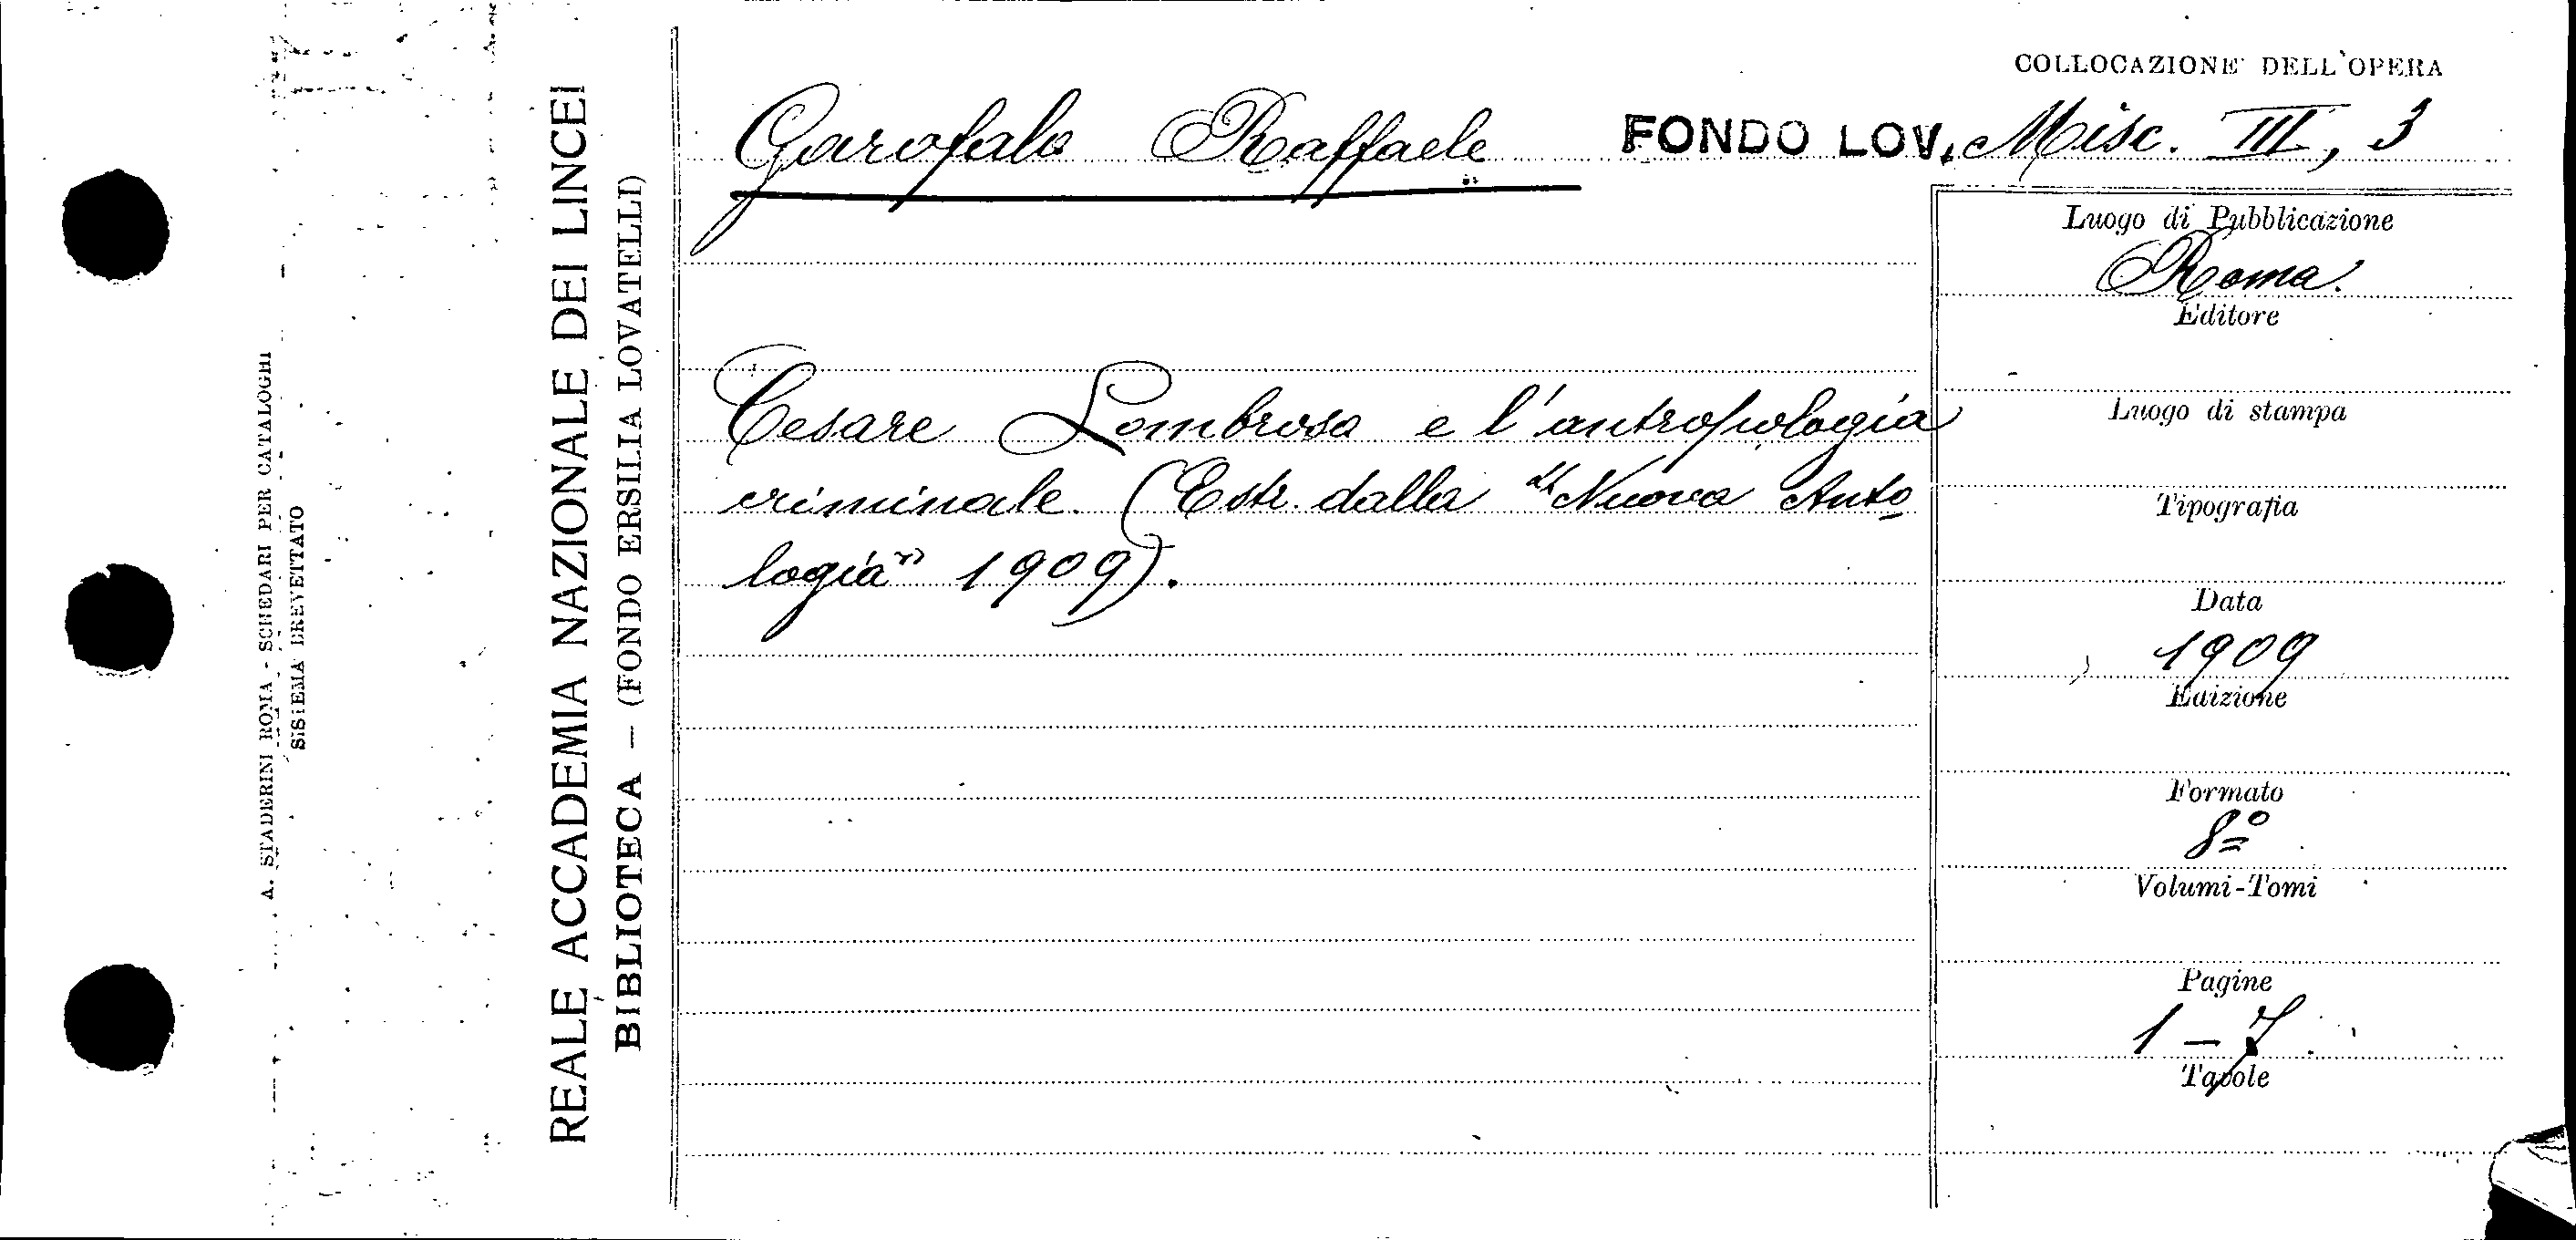 A. STADERINI ROMA - SCHEDARI PER CATALOGHI
SISTEMA BREVETTATO
REALE ACCADEMIA NAZIONALE DEI LINCEI
BIBLIOTECA — (FONDO ERSILIA LOVATELLI)
COLLOCAZIONE DELL'OPERA
Garofalo Raffaele FONDO LOV. Misc. III, 3
Cesare Lombroso e l'antropologia
criminale. (Estr. dalla "Nuova Anto
logia" 1909).
Luogo di Pubblicazione
Roma.
Editore
Luogo di stampa
Tipografia
Data
1909
Edizione
Formato
8º
Volumi-Tomi
Pagine
1 - 7
Tavole